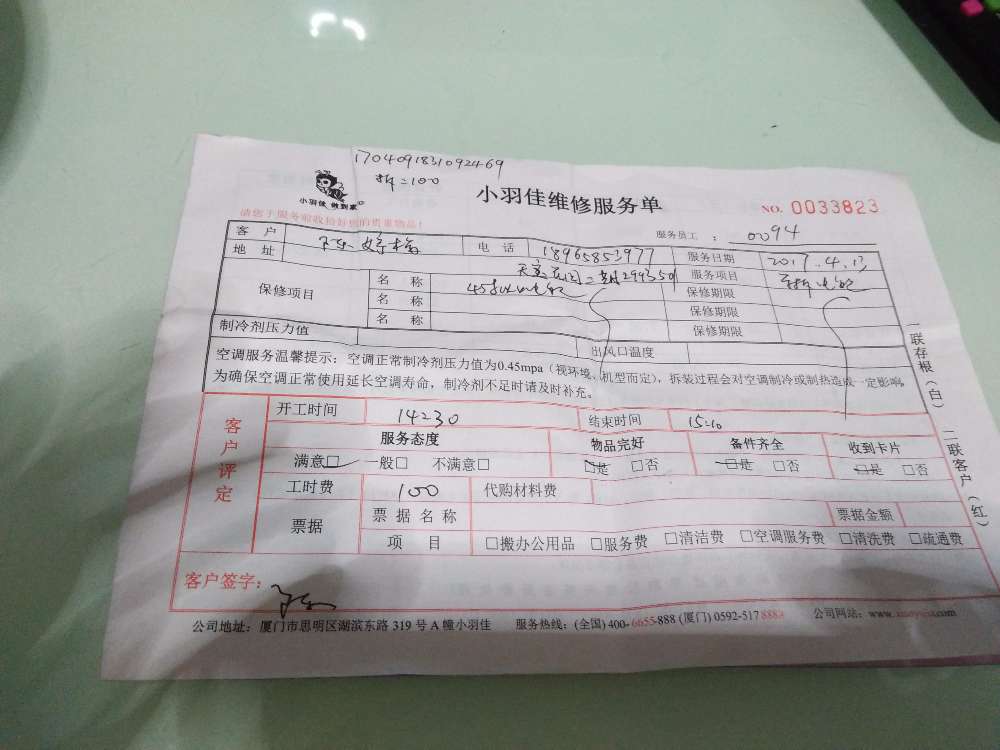 1704091831092469
拆=100
小羽佳 做到家
小羽佳维修服务单
NO. 0033823
请您于服务前收拾好您的贵重物品!
服务员工 : 0094
客 户
电 话 18965853977 服务日期 2017.4.13
地 址 服务项目
保修项目 名 称 保修期限
名 称 保修期限
名 称 保修期限
制冷剂压力值 出风口温度
空调服务温馨提示:空调正常制冷剂压力值为0.45mpa(视环境、机型而定),拆装过程会对空调制冷或制热造成一定影响,
为确保空调正常使用延长空调寿命,制冷剂不足时请及时补充。
一联存根(白) 二联客户(红)
客户评定
开工时间 14:30 结束时间 15:10
服务态度 物品完好 备件齐全 收到卡片
满意□ 一般□ 不满意□ □是 □否 □是 □否 □是 □否
工时费 100 代购材料费
票据 票 据 名 称 票据金额
项 目 □搬办公用品 □服务费 □清洁费 □空调服务费 □清洗费 □疏通费
客户签字:
公司地址:厦门市思明区湖滨东路 319 号 A 幢小羽佳 服务热线:(全国) 400-6655-888 (厦门) 0592-5178888 公司网站: